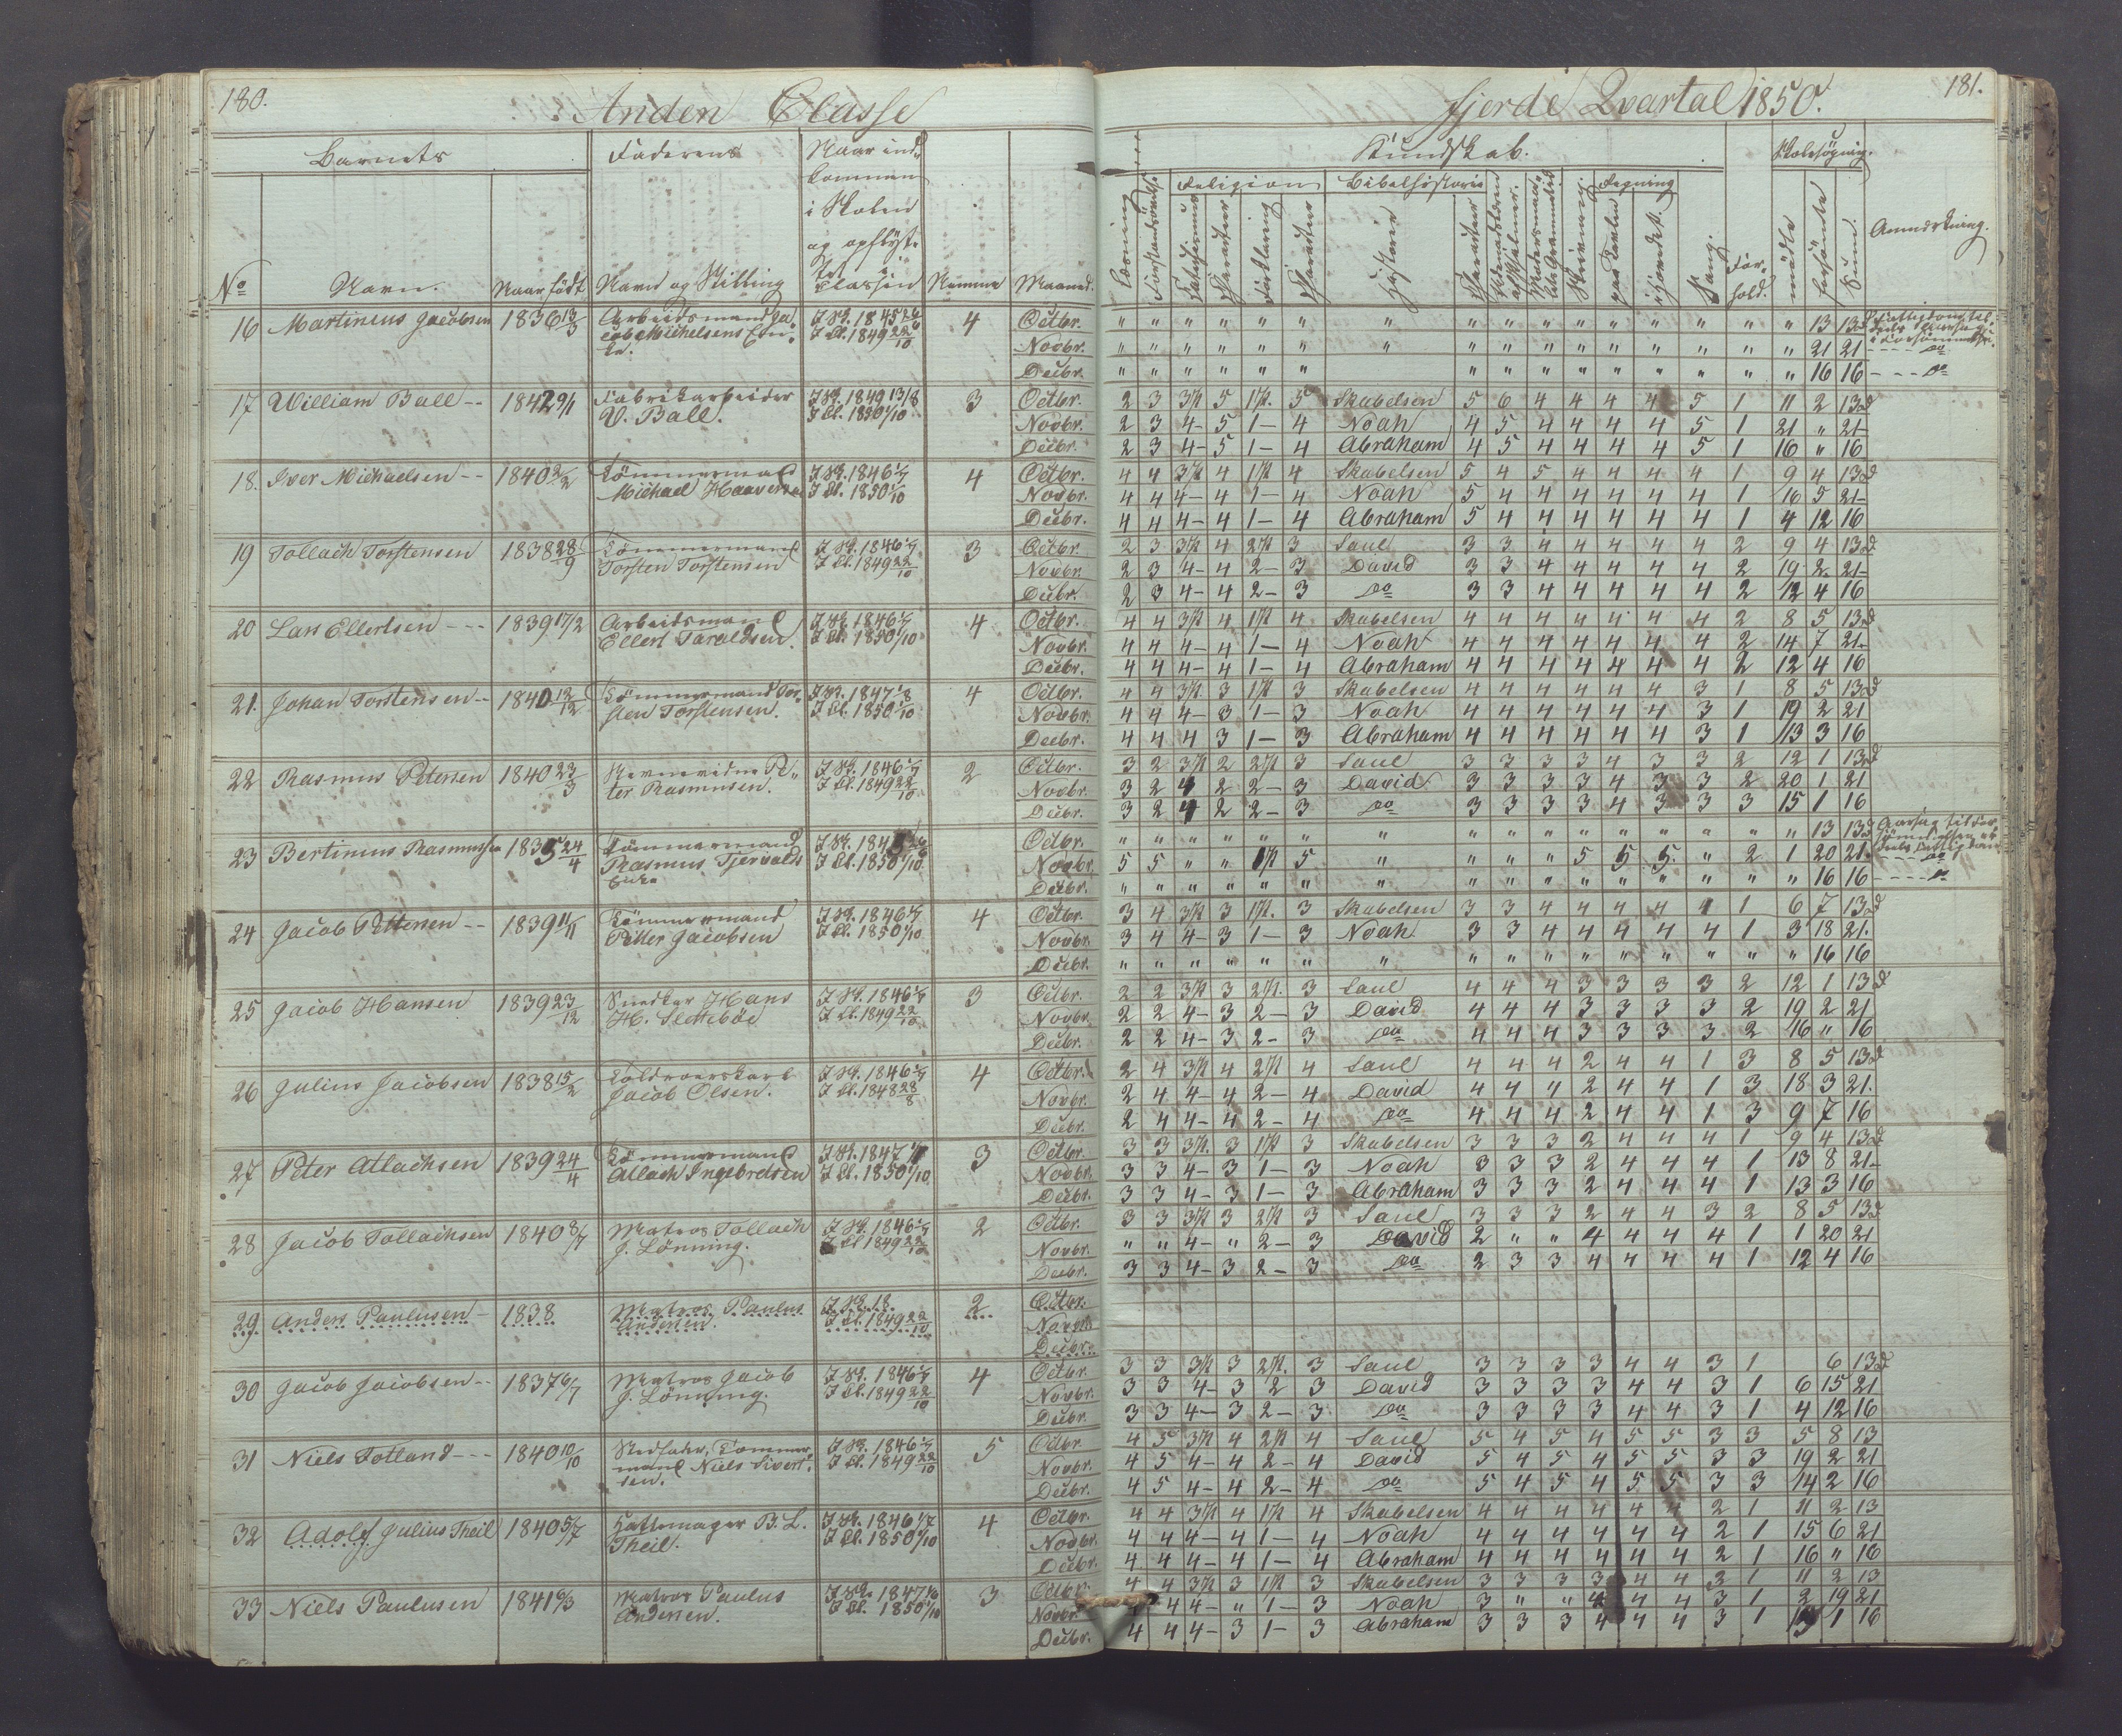 180.
Anden Classe
Barnets
Faderens
Naar ind-
kommen
i Skolen
og opflyt-
tet i
Classen
No
Navn.
Naar født
Navn og Stilling
Nummer
Maaned.
16 Martinius Jacobsen 1836 13/3 Arbeidsmand Ja- I Sk. 1845 4 Octbr.
cob Michelsens Enke. I Cl. 1849 22/10 Novbr.
Decbr.
17 William Ball -- 1842 9/1 Fabrikarbeider I Sk. 1849 13/8 3 Octbr.
V. Ball. I Cl. 1850 1/10 Novbr.
Decbr.
18. Iver Michaelsen -- 1840 2/2 Tömmermand I Sk. 1846 1/7 4 Octbr.
Michael Haaversen I Cl. 1850 1/10 Novbr.
Decbr.
19 Tollach Torstensen 1838 28/9 Tömmermand I Sk. 1846 1/7 3 Octbr.
Torsten Torstensen I Cl. 1849 22/10 Novbr.
Decbr.
20 Lars Ellertsen --- 1839 17/2 Arbeidsmand I Sk. 1846 1/7 4 Octbr.
Ellert Taraldsen. I Cl. 1850 1/10 Novbr.
Decbr.
21. Johan Torstensen -- 1840 12/12 Tömmermand Tor- I Sk. 1847 1/8 4 Octbr.
sten Torstensen. I Cl. 1850 1/10 Novbr.
Decbr.
22 Rasmus Petersen 1840 23/3 Stevnevidne Pe- I Sk. 1846 1/7 2 Octbr.
ter Rasmusen. I Cl. 1849 22/10 Novbr.
Decbr.
23 Bertinius Rasmussen 1835 24/4 Tömmermand I Sk. 1845 Octbr.
Rasmus Tjervalds I Cl. 1850 1/10 Novbr.
Enke Decbr.
24 Jacob Pettersen -- 1839 11/11 Tömmermand I Sk. 1846 1/7 4 Octbr.
Petter Jacobsen I Cl. 1850 1/10 Novbr.
Decbr.
25 Jacob Hansen 1839 23/12 Snedker Hans I Sk. 1846 1/7 3 Octbr.
H. Slettebøe I Cl. 1849 22/10 Novbr.
Decbr.
26 Julius Jacobsen 1838 15/2 Toldroerskarl I Sk. 1846 1/7 4 Octbr.
Jacob Olsen. I Cl. 1848 28/8 Novbr.
Decbr.
27 Peter Atlachsen 1839 24/4 Tömmermand I Sk. 1847 3 Octbr.
Atlach Ingebretsen I Cl. 1850 1/10 Novbr.
Decbr.
28 Jacob Tollachsen 1840 8/7 Matros Tollach I Sk. 1846 1/7 2 Octbr.
J. Lönning. I Cl. 1849 22/10 Novbr.
Decbr.
29 Anders Paulusen - 1838 Matros Paulus I Sk. 18 2 Octbr.
Andersen. I Cl. 1849 22/10 Novbr.
Decbr.
30 Jacob Jacobsen -- 1837 6/7 Matros Jacob I Sk. 1846 1/7 4 Octbr.
J. Lönning. I Cl. 1849 22/10 Novbr.
Decbr.
31 Niels Totland --- 1840 10/10 Stedfader, Tömmer- I Sk. 1846 1/7 5 Octbr.
mand Niels Sivert- I Cl. 1849 22/10 Novbr.
sen. Decbr.
32 Adolf Julius Theil 1840 5/7 Hattemager B. L. I Sk. 1846 1/7 4 Octbr.
Theil. I Cl. 1850 1/10 Novbr.
Decbr.
33 Niels Paulusen 1841 6/3 Matros Paulus I Sk. 1847 3 Octbr.
Andersen. I Cl. 1850 1/10 Novbr.
Decbr.
fjerde Qvartal 1850.
181.
Kundskab.
Skolesøgning.
Religion
Bibelhistorie
Regning
Læsning
Forstandsøvelse
Forklaring
Charakter
Historie
Charakter
Skrivning.
paa Tavlen
i Hovedet.
Sang.
For-
hold.
mödte
forsömte
Sum.
Anmærkning.
" " " " " " " " " " " " " " " " 13 13d
" " " " " " " " " " " " " " " " 21 21 ---- do
" " " " " " " " " " " " " " " 16 16 --- do
2 3 3die 5 1ste 5 Skabelsen 5 6 4 4 4 4 5 1 11 2 13d
2 3 4- 5 1- 4 Noah 4 5 4 4 4 4 5 1 21 " 21-
2 3 4- 5 1- 4 Abraham 4 5 4 4 4 4 5 1 16 " 16
4 4 3die 4 1ste 4 Skabelsen 5 4 5 4 4 4 4 1 9 4 13d
4 4 4- 4 1- 4 Noah 5 4 4 4 4 4 4 1 16 5 21-
4 4 4- 4 1- 4 Abraham 5 4 4 4 4 4 4 1 4 12 16
2 3 3die 4 2det 3 Saul 3 3 4 4 4 4 4 2 9 4 13d
2 3 4- 4 2- 3 David 3 3 4 4 4 4 4 2 19 2 21-
2 3 4- 4 2- 3 do 3 3 4 4 4 4 4 2 12 4 16
4 4 3die 4 1ste 4 Skabelsen 4 4 4 4 4 4 4 2 8 5 13d
4 4 4- 4 1- 4 Noah 4 4 4 4 4 4 4 2 14 7 21-
4 4 4- 4 1- 4 Abraham 4 4 4 4 4 4 4 2 12 4 16
4 4 3die 3 1ste 3 Skabelsen 4 4 4 4 4 4 3 1 8 5 13d
4 4 4- 3 1- 3 Noah 4 4 4 4 4 4 3 1 19 2 21
4 4 4 3 1- 3 Abraham 4 4 4 4 4 4 3 1 13 3 16
3 2 3die 2 2det 3 Saul 3 3 3 3 4 3 3 2 12 1 13d
3 2 4 2 2- 3 David 3 3 3 3 4 3 3 2 20 1 21
3 2 4 2 2- 3 do 3 3 3 3 4 3 3 3 15 1 16
" " " " " " " " " " " " " " " " 13 13d Aarsag til For-
5 5 " " 1ste 5 " " " " 5 5 5 " 2 1 20 21 ---- do
" " " " " " " " " " " " " " " " 16 16 ---- do
3 4 3die 3 1ste 3 Skabelsen 3 3 4 4 4 4 4 1 6 7 13d
3 4 4- 3 1- 3 Noah 3 3 4 4 4 4 4 1 3 18 21.
" " " " " " " " " " " " " " " " 16 16
2 2 3die 3 2det 3 Saul 4 4 4 3 3 3 3 2 12 1 13d
2 2 4- 3 2- 3 David 4 4 4 3 3 3 3 2 19 2 21
2 2 4- 3 2- 3 do 4 4 4 3 3 3 3 2 16 " 16
2 4 3die 4 2det 4 Saul 4 4 4 2 4 4 1 3 8 5 13d
2 4 4- 4 2- 4 David 4 4 4 2 4 4 1 3 18 3 21.
2 4 4- 4 2- 4 do 4 4 4 2 4 4 1 3 9 7 16
3 3 3die 3 1ste 3 Skabelsen 3 3 3 2 4 4 4 1 9 4 13d
3 3 4- 3 1- 3 Noah 3 3 3 2 4 4 4 1 13 8 21-
3 3 4- 3 1- 3 Abraham 3 3 3 2 4 4 4 1 13 3 16
3 3 3die 3 2det 3 Saul 3 3 3 2 4 4 3 2 8 5 13d
" " 4- " 2- 3 David 2 " " 4 4 4 4 1 1 20 21
3 3 4- 3 2- 3 do 2 3 3 4 4 4 4 1 12 4 16
3 3 3die 3 2det 3 Saul 3 3 3 3 4 4 3 1 6 13d
3 3 4- 3 2 3 David 3 3 3 3 4 4 3 1 6 15 21
3 3 4- 3 2- 3 do 3 3 3 3 4 4 3 1 4 12 16
4 5 3die 4 2det 4 Saul 5 4 5 4 5 5 3 3 5 8 13
4 5 4- 4 2- 4 David 5 4 5 4 5 5 3 3 19 2 21
4 5 4- 4 2- 4 do 5 4 5 4 5 5 3 3 14 2 16
4 4 3die 4 1ste 4 Skabelsen 4 4 4 4 4 4 2 1 11 2 13
4 4 4- 4 1- 4 Noah 4 4 4 4 4 4 2 1 15 6 21
4 4 4- 4 1- 4 Abraham 4 4 4 4 4 4 2 1 16 " 16
4 4 3die 3 1ste 3 Skabelsen 3 3 3 3 4 4 2 1 11 2 13
4 4- " 1- 3 Noah 3 " " 4 4 4 3 1 2 19 21
4 4 4- 3 1- 3 Abraham 3 3 3 4 4 4 3 1 15 1 16